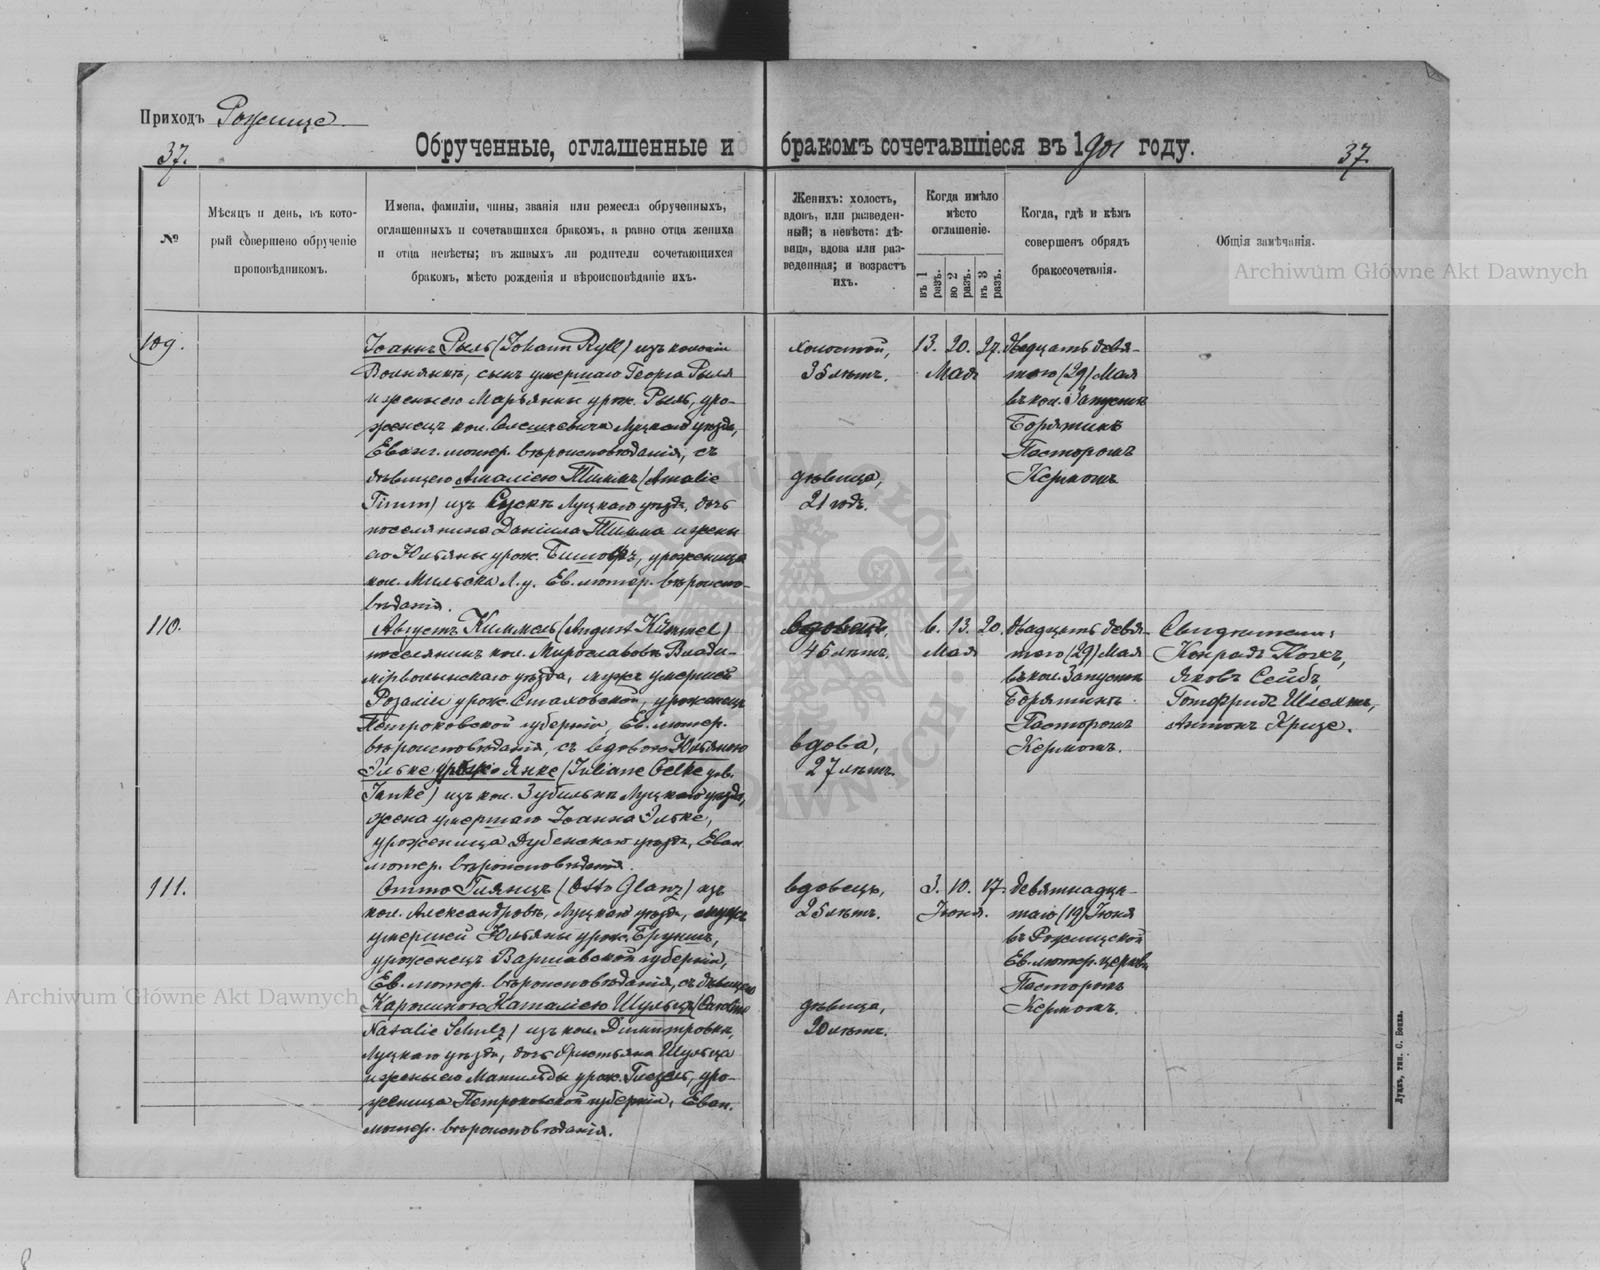 Приходъ Рожище
37.
Обрученные, оглашенные и бракомъ сочетавшіеся въ 1901 году.
37.
№
Мѣсяцъ и день, въ кото-
рый совершено обрученіе
проповѣдникомъ.
Имена, фамиліи, чины, званія или ремесла обрученныхъ,
оглашенныхъ и сочетавшихся бракомъ, а равно отца жениха
и отца невѣсты; въ живыхъ ли родители сочетающихся
бракомъ, мѣсто рожденія и вѣроисповѣданіе ихъ.
Женихъ: холостъ,
вдовъ, или разведен-
ный; а невѣста: дѣ-
вица, вдова или раз-
веденная; и возрастъ
ихъ.
Когда имѣло
мѣсто
оглашеніе.
въ 1
разъ.
во 2
разъ.
въ 3
разъ.
Когда, гдѣ и кѣмъ
совершенъ обрядъ
бракосочетанія.
Общія замѣчанія.
Archiwum Główne Akt Dawnych
109.
Іоаннъ Рыль (Johann Ryll) изъ колоніи
Волнянкъ, сынъ умершаго Георга Рыля
и жены его Марьянны урож. Рыль, уро-
женецъ кол. Олешкевича Луцкаго уѣзда,
Еванг. лютер. вѣроисповѣданія, съ
дѣвицею Амаліею Тиммъ (Amalie
Timm) изъ Луцкаго уѣзда, дочь
поселянина Даніила Тимма и жены
его Юльяны урож. уроженица
кол. Мильска Л. у. Ев. лютер. вѣроиспо-
вѣданія.
холостой,
35 лѣтъ.
дѣвица,
21 годъ.
13. 20. 27.
Мая
двадцать девя-
таго (29) Мая
въ кол. Запустъ
Борятинъ
Пасторомъ
Кермомъ
110.
Августъ Киммель (August Kümmel)
поселянинъ кол. Мирославовкъ Влади-
мірволынскаго уѣзда, мужъ умершей
Розаліи урож. Стаховской, уроженецъ
Петроковской губерніи, Ев. лютер.
вѣроисповѣданія, съ вдовою Юльяною
Эльке урожд. Янке (Juliane Oelke geb.
Janke) изъ кол. Зубильнъ Луцкаго уѣзда,
жена умершаго Іоанна Эльке,
уроженица Дубенскаго уѣзда, Еван.
лютер. вѣроисповѣданія.
вдовецъ,
45 лѣтъ.
вдова,
27 лѣтъ.
6. 13. 20.
Мая
двадцать девя-
таго (29) Мая
въ кол. Запустъ
Борятинъ
Пасторомъ
Кермомъ.
Свидѣтели:
Конрадъ
Яковъ Сейбъ,
Готфридъ
Антонъ Кризе.
111.
Отто Глянцъ (Otto Glanz) изъ
кол. Александровкъ, Луцкаго уѣзда, мужъ
умершей Юльяны урож.
уроженецъ Варшавской губерніи,
Ев. лютер. вѣроисповѣданія, съ дѣвицею
Каролиною Наталіею Шульцъ (Caroline
Natalie Schulz) изъ кол. Димитровки,
Луцкаго уѣзда, дочь Христьяна Шульца
и жены его Матильды урож. уро-
женица Петроковской губерніи, Еван.
лютер. вѣроисповѣданія.
вдовецъ,
25 лѣтъ.
дѣвица,
20 лѣтъ.
3. 10. 17.
Іюня.
девятнадца-
таго (19) Іюня
въ Рожищской
Ев. лютер. церкви
Пасторомъ
Кермомъ.
Archiwum Główne Akt Dawnych
Луцкъ, тип. С. Бокка.